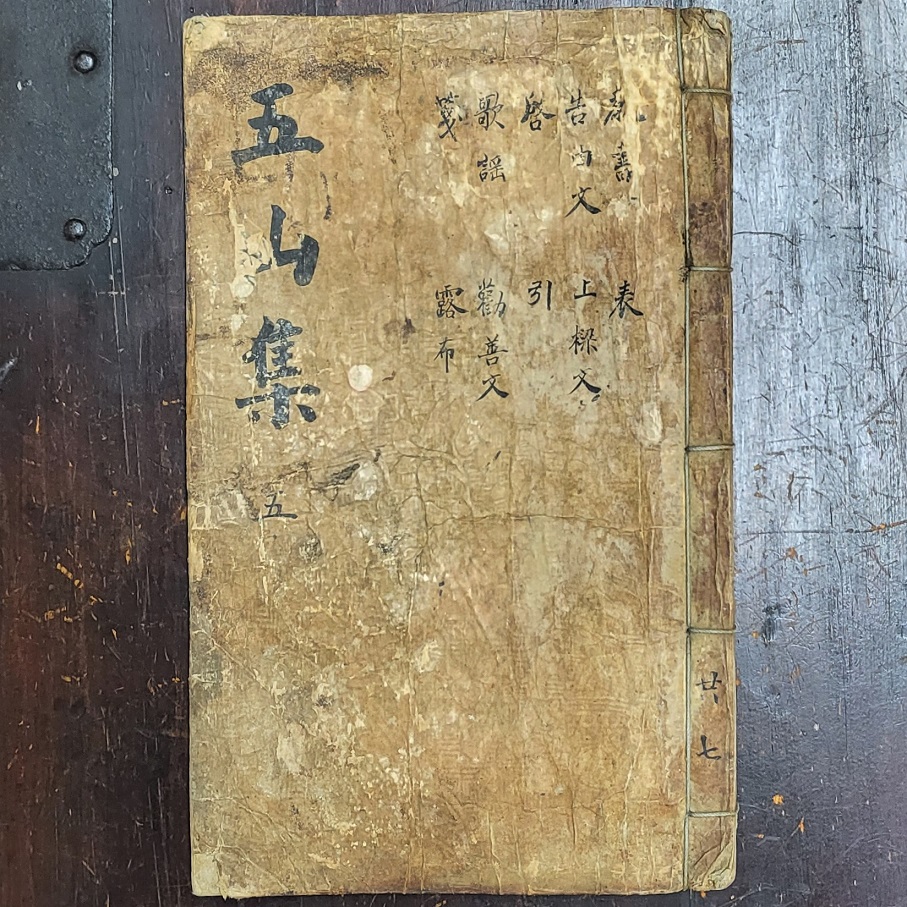 表
告由文 上樑文
啓 引
歌謠 勸善文
箋 露布
五山集 五
共七